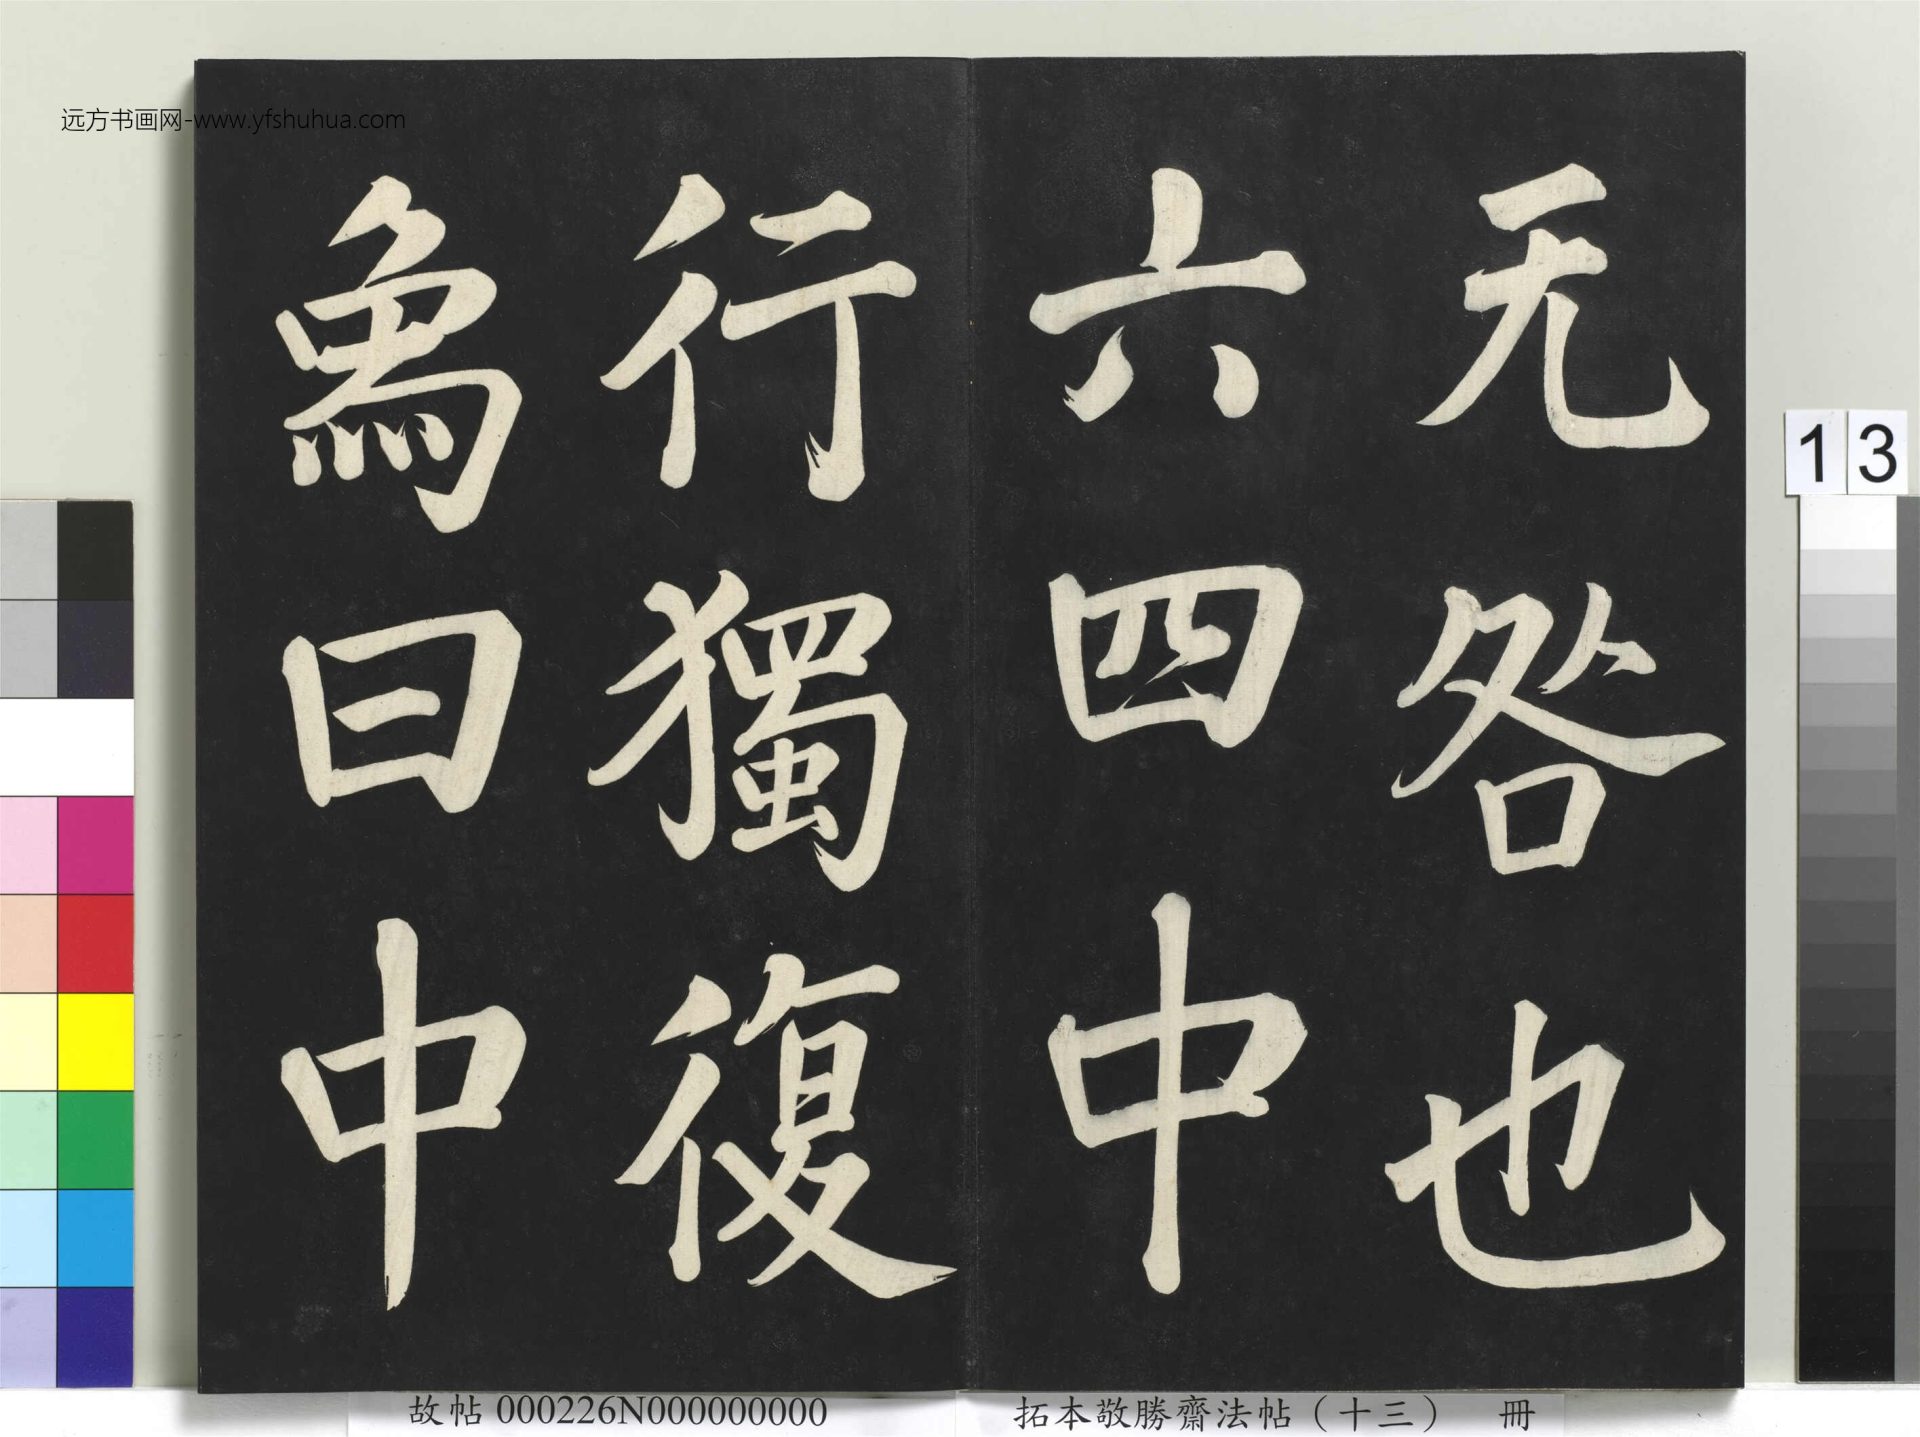 远方书画网-www.yfshuhua.com
无咎也
六四中
行獨復
象曰中
13
故帖 000226N000000000
拓本敬勝齋法帖（十三） 冊